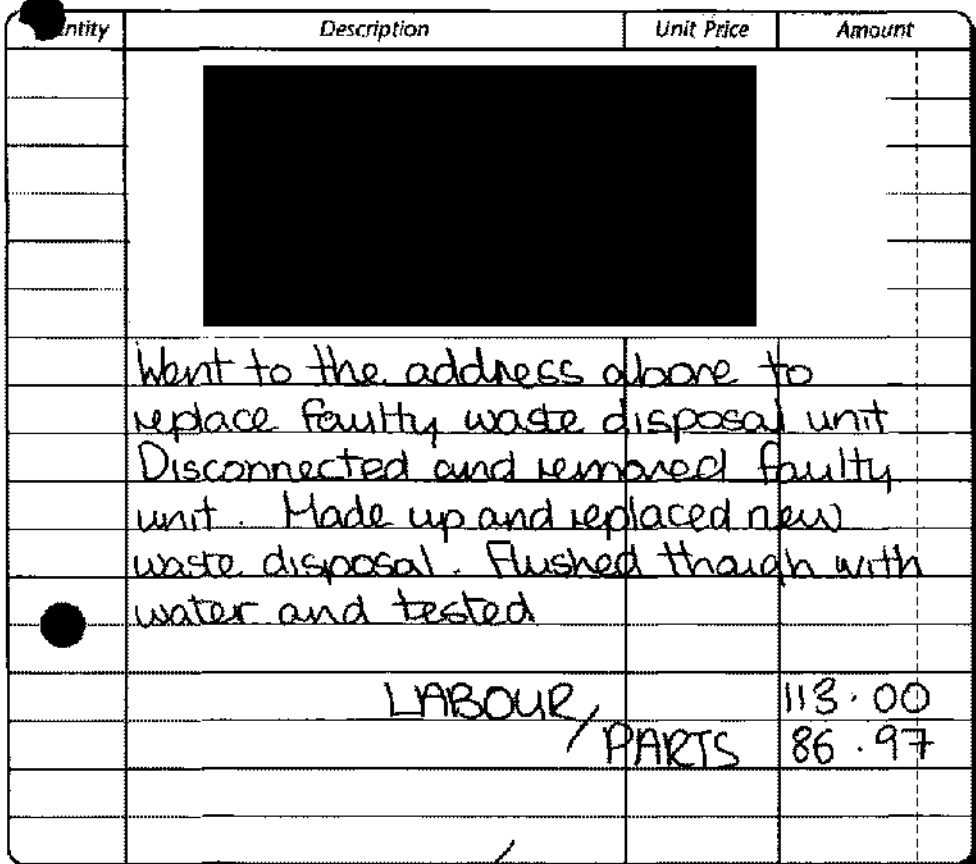 ntity Description Unit Price Amount
Went to the address above to
replace faulty waste disposal unit
Disconnected and removed faulty
unit. Made up and replaced new
waste disposal. Flushed though with
water and tested
LABOUR/ 113.00
PARTS 86.97